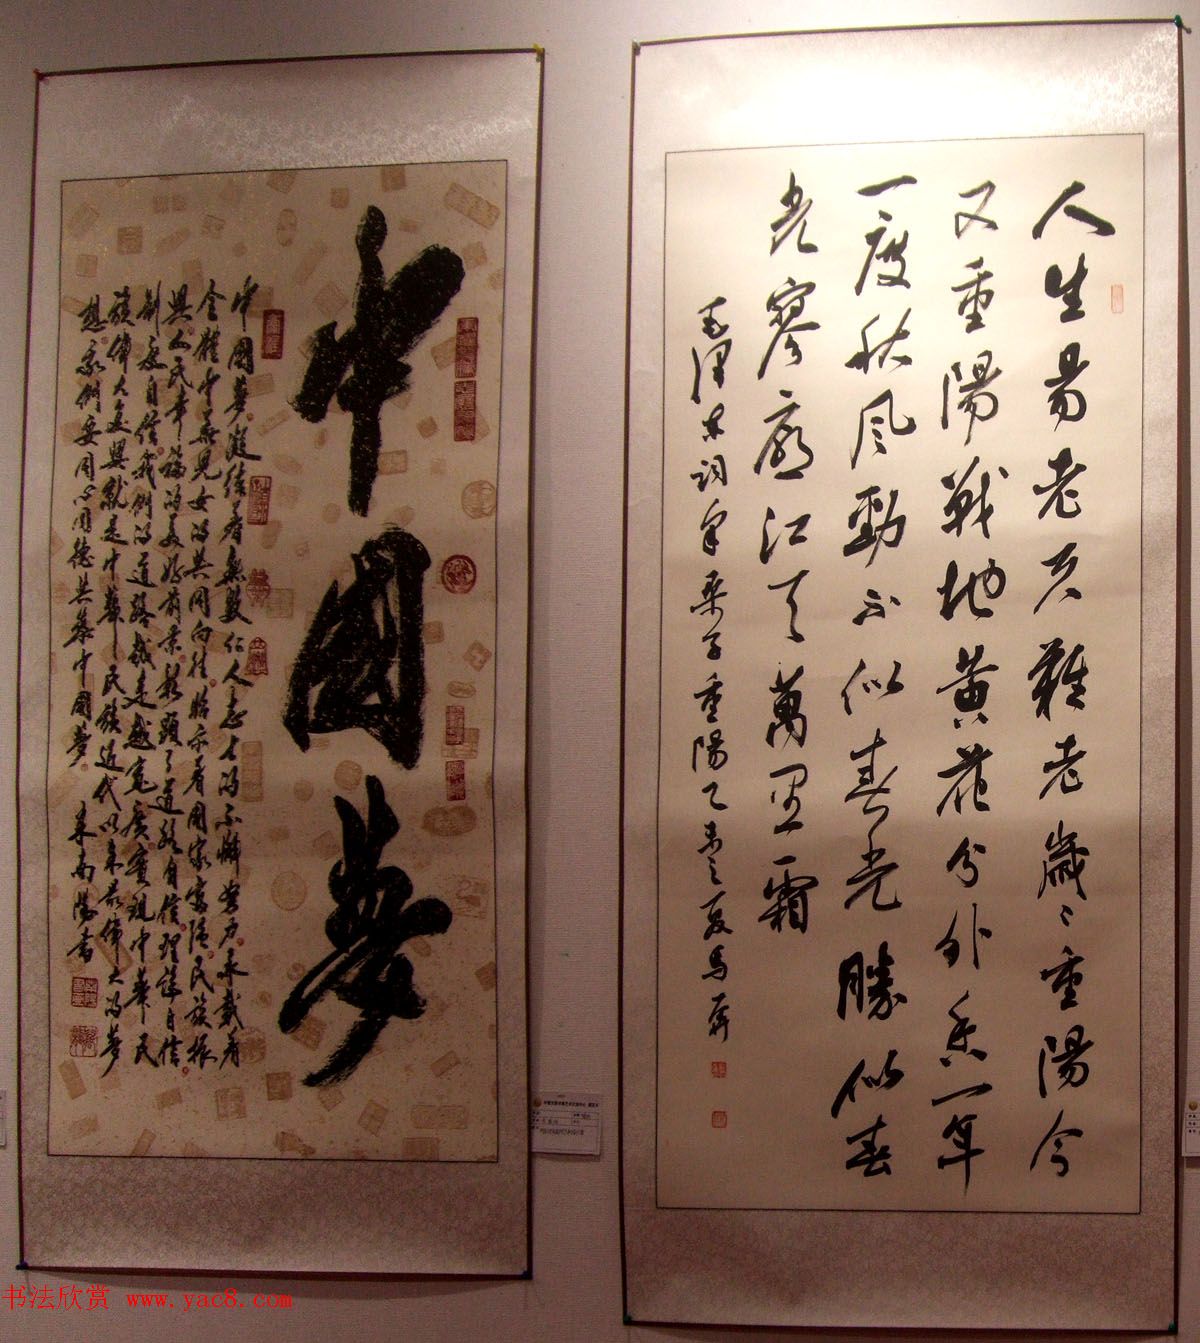 中國夢
中國夢凝結着無數仁人志士的不懈努力承載着
全體中華兒女的共同向往昭示着國家富强民族振
興人民幸福的美好前景彰顯了道路自信理論自信
制度自信我們的道路越走越寬廣實現中華民
族偉大復興就是中華民族近代以来最偉大的夢
想我們要同心同德共築中國夢 南陽書
人生易老天難老歲〻重陽今
又重陽戰地黄花分外香一年
一度秋風勁不似春光勝似春
光寥廓江天萬里霜
毛澤東詞采桑子重陽乙未之夏馬
书法欣赏 www.yac8.com